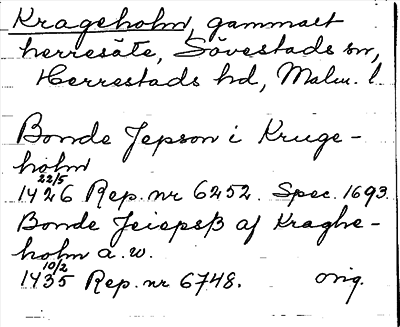 Krageholm, gammalt
herresäte, Sövestads sn,
Herrestads hd, Malm. l.
Bonde Jepson i Kruge-
holm
22/5
1426 Rep. nr 6252. Spec. 1693.
Bonde Jeiepsß af Kraghe-
holm a. w.
10/2
1435 Rep. nr 6748. orig.